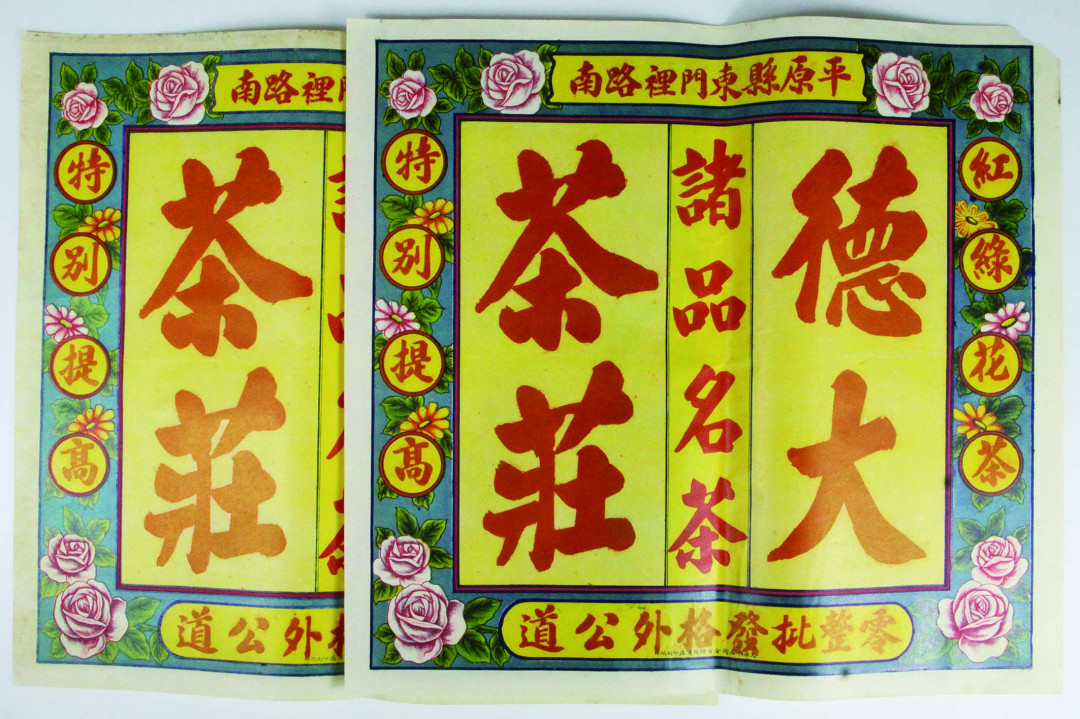 平原縣東門裡路南
紅綠花茶
德大
諸品名茶
茶莊
特別提高
零整批發格外公道
裡路南
茶莊
特別提高
外公道